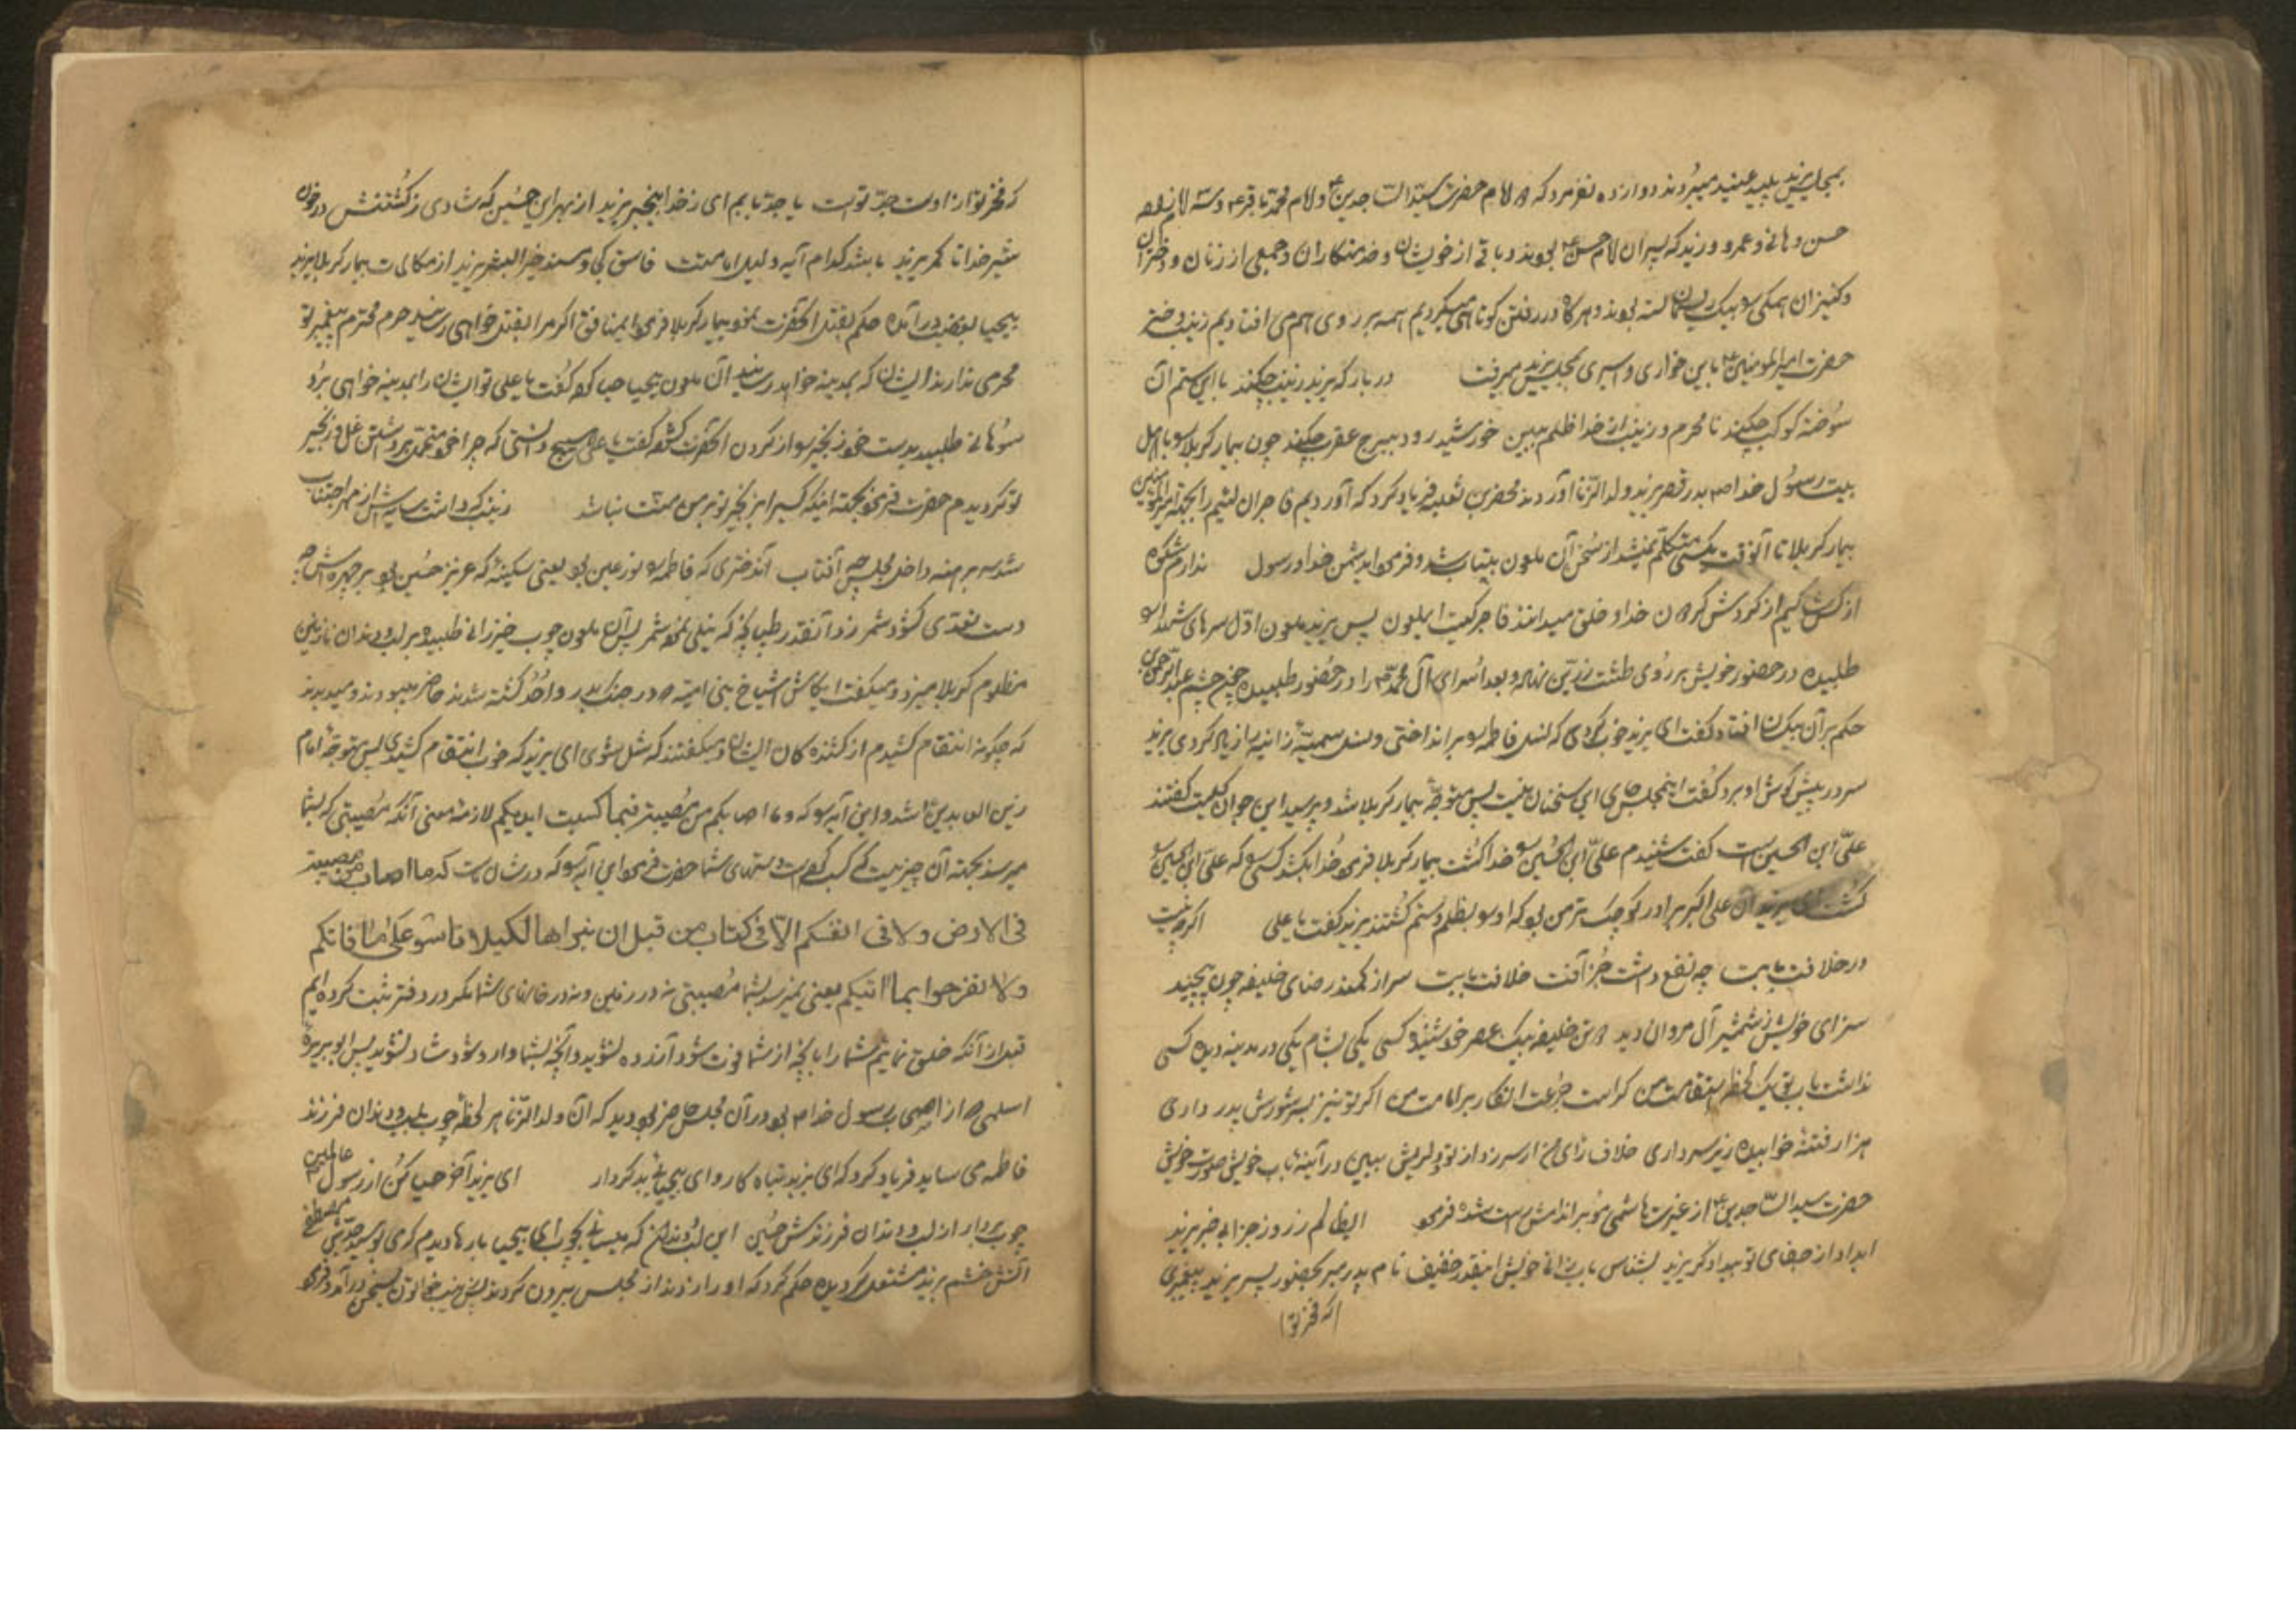 بمجلس یزید پلید عنید میبردند دوازده نفر مرد که امام حضرت سید الساجدین ع و امام محمد باقر ع و سه
حسن و عمرو و زید که پسران امام حسن ع بودند و باقی از خویشان و خدمتکاران و جمعی از زنان و دختران
و کنیزان همگی بیک ریسمان بسته بودند و هرگاه در رفتن کوتاهی میکردیم همه بر روی هم می افتادیم زینب دختر
حضرت امیرالمومنین ع باین خواری و اسیری بمجلس یزید میرفت در بارگه یزید زینب چکند با این ستم آن
سوخته کوکب چکند نامحرم و زینب از خدا ظلم ببین خورشید رود ببرج عقرب چکند چون بیمار کربلا با اهل
بیت رسول خدا ص بدر قصر یزید ولد الزنا آوردند محضر بن ثعلبه فریاد کرد که آوردیم فاجران لئیم را بجهة امیرالمومنین
بیمار کربلا تا آنوقت بکسی متکلم نمیشد از سخن آن ملعون بیتاب شد و فرمود ایدشمن خدا و رسول ندارم شکوه
از کس از گردش گردون خدا و خلق میدانند فاجر کیست ایملعون پس یزید ملعون اول سرهای شهدا
طلبیده در حضور خویش بر روی طشت زرین نهاده و بعد اسرای آل محمد را در حضور طلبیده چون چشم عبدالرحمن
حکم بر آن بیکسان افتاد گفت ای یزید خوب کردی که نسل فاطمه بر انداختی و نسل سمیه زانیه زیاد کردی یزید
سر در پیش گوش او برد گفت اینمجلس جای این سخنان نیست پس متوجه بیمار کربلا شد و پرسید این جوان کیست گفتند
علی ابن الحسین است گفت شنیدم علی ابن الحسین خدا کشت بیمار کربلا فرمود خدا بکشد کسی که علی ابن الحسین
کشت ای یزید آن علی اکبر برادر کوچک تر من بود که او بظلم و ستم کشتند یزید گفت یا علی اگرچه نیست
در خلافت بابت چه نفع داشت جز آفت خلافت بابت سر از کمند رضای خلیفه چون پیچید
سزای خویش ز شمشیر آل مروان دید خلیفه بیک عصر خود شنید کسی یکی بشام یکی در مدینه دید کسی
نداشت باب تو یک لحظه استقامت من کراست جرئت انکار بر امامت من اگر تو نیز بسر شورش پدر داری
هزار فتنه خوابیده زیر سر داری خلاف رای من ار سر زد از تو دلریش ببین در آینه باب خویش صورت خویش
حضرت سید الساجدین ع از غیرت هاشمی مو بر اندامش راست شده فرمود ایظالم ز روز جزا بیخبر یزید
ایداد از جفای تو بیدادگر یزید بشناس باب زانی خویش اینقدر خفیف نام پدر مبر بحضور پسر یزید پیغمبری
که فخر تو
که فخر تو از اوست جد توست یا جد مایم ای ز خدا بیخبر یزید از بهر این حسین که شادی ز کشتنش در خون
شیر خدا تا کمر یزید باشد کدام آیه دلیل امامتت فاسق کی و مسند خیر البشر یزید از مکالمات بیمار کربلا یزید
بیحیا بغضب درآمده حکم بقتل آنحضرت نمود بیمار کربلا فرمود ایمنافق اگر مرا بقتل خواهی رسانید حرم محترم پیغمبر تو
محرمی ندارند ایشان که بمدینه خواهد رسانید آن ملعون بیحیا حیا کرد گفت یا علی تو ایشان را بمدینه خواهی برد
سوهانی طلبید بدست خود زنجیر از گردن آنحضرت گشود گفت یا علی هیچ دانستی که چرا خود متحمل برداشتن غل و زنجیر
تو گردیدم حضرت فرمود بجهته اینکه کسی را بجز تو بر من منت نباشد زینب که داشت سایه اش از مهر اجتناب
شد سر برهنه داخل مجلس چو آفتاب آندختری که فاطمه نور عین بود یعنی سکینه که عزیز حسین بود بر چهره اش
دست تعدی گشود شمر زد آنقدر طپانچه که نیلی نمود شمر پس آن ملعون چوب خیزرانی طلبیده بر لب و دندان نازنین
مظلوم کربلا میزد و میگفت ایکاش اشیاخ بنی امیه که در جنگ بدر و احد کشته شدند حاضر میبودند و میدیدند
که چگونه انتقام کشیدم از کشنده کان ایشان و میگفتند که شل نشوی ای یزید که خوب انتقام کشیدی پس متوجه امام
زین العابدین شد و این آیه که و ما اصابکم من مصیبة فبما کسبت ایدیکم معنی آنکه مصیبتی که بشما
میرسد بجهته آن چیزیست که کسب کرده است دستهای شما حضرت فرمود این آیه که در شان ماست که ما اصاب من مصیبة
فی الارض ولا فی انفسکم الا فی کتاب من قبل ان نبراها لکیلا تاسو علی ما فاتکم
ولا تفرحوا بما اتیکم یعنی نمیرسد بشما مصیبتی نه در زمین و نه در جانهای شما مگر در دفتر ثبت کرده ایم
قبل از آنکه خلق نمائیم شما را تا بآنچه از شما فوت شود آزرده نشوید و آنچه بشما وارد شود شاد نشوید پس ابو بریره
اسلمی که از اصحاب رسول خدا ص بود در آن مجلس حاضر بود دید که آن ولد الزنا هر لحظه چوب بلب و دندان فرزند
فاطمه می ساید فریاد کرد که ای یزید تباه کار و ای بیحیای بد کردار ای یزید آخر حیا کن از رسول عالمین
چوب بردار از لب و دندان فرزندش حسین این لب و دندان که میسائی بچوب ای بیحیا بارها دیدم که می بوسید جدش مصطفی
آتش خشم یزید مشتعل گردیده حکم کرد که او را زدند از مجلس بیرون کردند پس زینب خاتون بسخن درآمد و فرمود